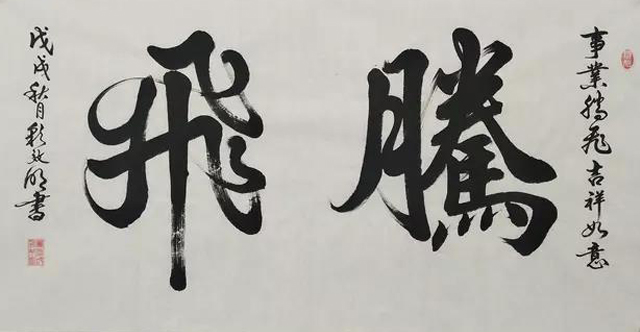 事業騰飛吉祥如意
騰飛
戊戌秋月明書